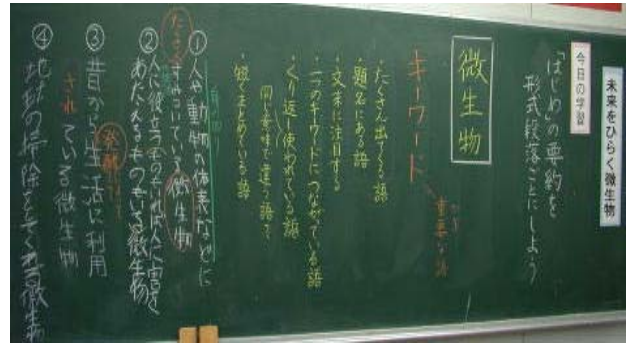 未来をひらく微生物
今日の学習
「はじめ」の要約を
形式段落ごとにしよう
微生物
キーワード
重要な語
・たくさん出てくる語
・題名にある語
・文末に注目する
・一つのキーワードにつながっている語
・くり返し使われている語
同じ意味で違う語で
・短くまとめている語
身の回り
①人や動物の体表などに
たくさんすみついている微生物
②人に役立つものもあれば人に害を
あたえるものもある微生物
③昔から生活に利用
されている微生物
発酵
④地球の掃除をしてくれる微生物